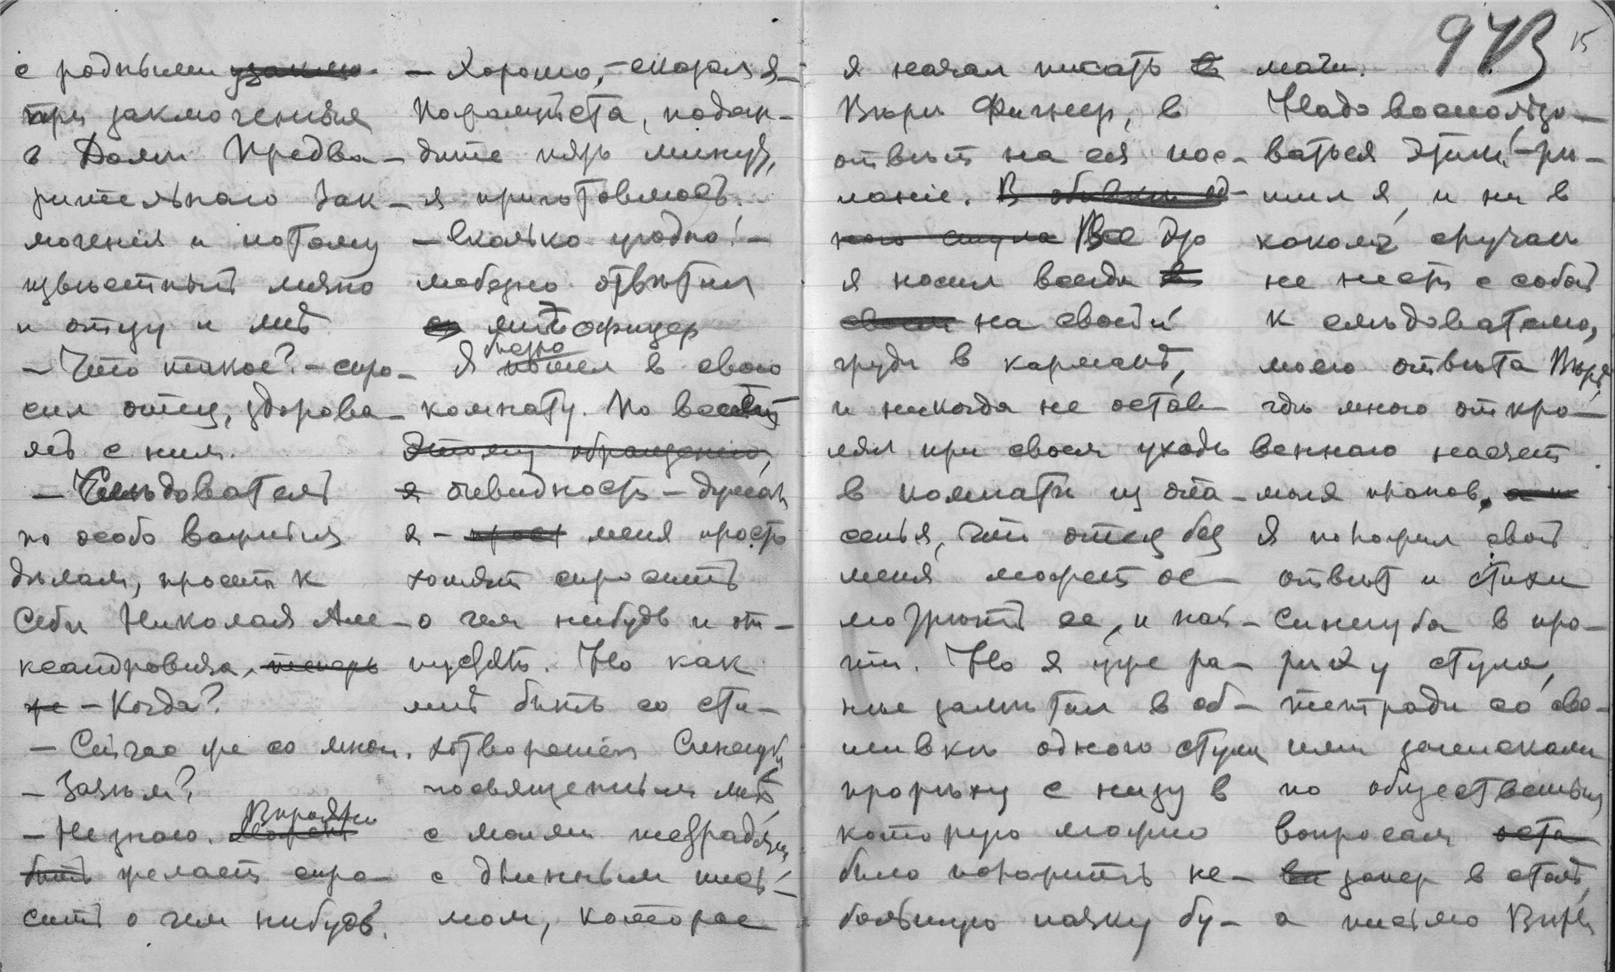 с родными
при заключеніи
в Доми Предва-
рительнаго Зак-
люченія и потому
извѣстный лично
и отцу и мнѣ
— Что такое? – спро-
сил отец, здорова-
ясь с ним.
— Слѣдователь
по особо важным
дѣлам, просит к
себѣ Николая Але-
ксандровича,
— Когда?
— Сейчас же со мной.
— Зачѣм?
— Не знаю. Вѣроятно
желает спро-
сить о чем нибудь.
— Хорошо, – сказал я –
Пожалуйста, подож-
дите пять минут,
я приготовлюсь.
— Сколько угодно! –
любезно отвѣтил
офицер
Я пошел в свою
комнату. По всей
этому обращенію,
я очевидность – думал
я – меня просто
хотят спросить
о чем нибудь и от-
пустят. Но как
мнѣ быть со сти-
хотвореніем Синегуба
посвященным мнѣ,
с моими тетрадями,
с длинным пись-
мом, которое
973 15
я начал писать
Вѣрѣ Фигнер, в
отвѣт на ея пос-
ланіе. В обивки од-
ного стула Все это
я носил всегда в
своем на своей
груди в карманѣ,
и никогда не остав-
лял при своем уходѣ
в комнатѣ из опа-
сенья, что отец без
меня может ос-
мотрѣть ее, и най-
ти. Но я уже ра-
нѣе замѣтил в об-
шивкѣ одного стула
прорѣху с низу в
которую можно
было положить не-
большую пачку бу-
маги.
Надо воспользо-
ваться этим! – рѣ-
шил я, и ни в
каком случаѣ
не нести с собой
к слѣдователю,
моего отвѣта Вѣрѣ,
гдѣ много откро-
веннаго насчет
моих планов.
Я положил свой
отвѣт и стихи
Синегуба в про-
рѣху стула,
тетради со сво-
ими замѣтками
по общественным
вопросам
запер в стол,
а письмо Вѣры